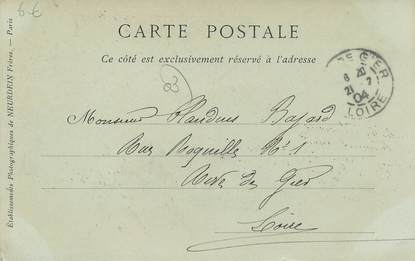 6 €
CARTE POSTALE
Ce côté est exclusivement réservé à l'adresse
DE GIER
6 20
21 7
04
LOIRE
Monsieur Bajard
Rue N° 1
Rive de Gier
Loire
Établissements Photographiques de NEURDEIN Frères. — Paris